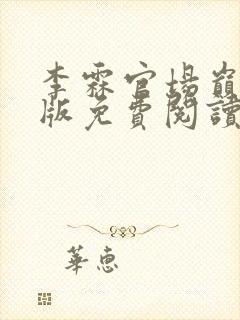 李霖官場巔
版免費閱讀
華惠